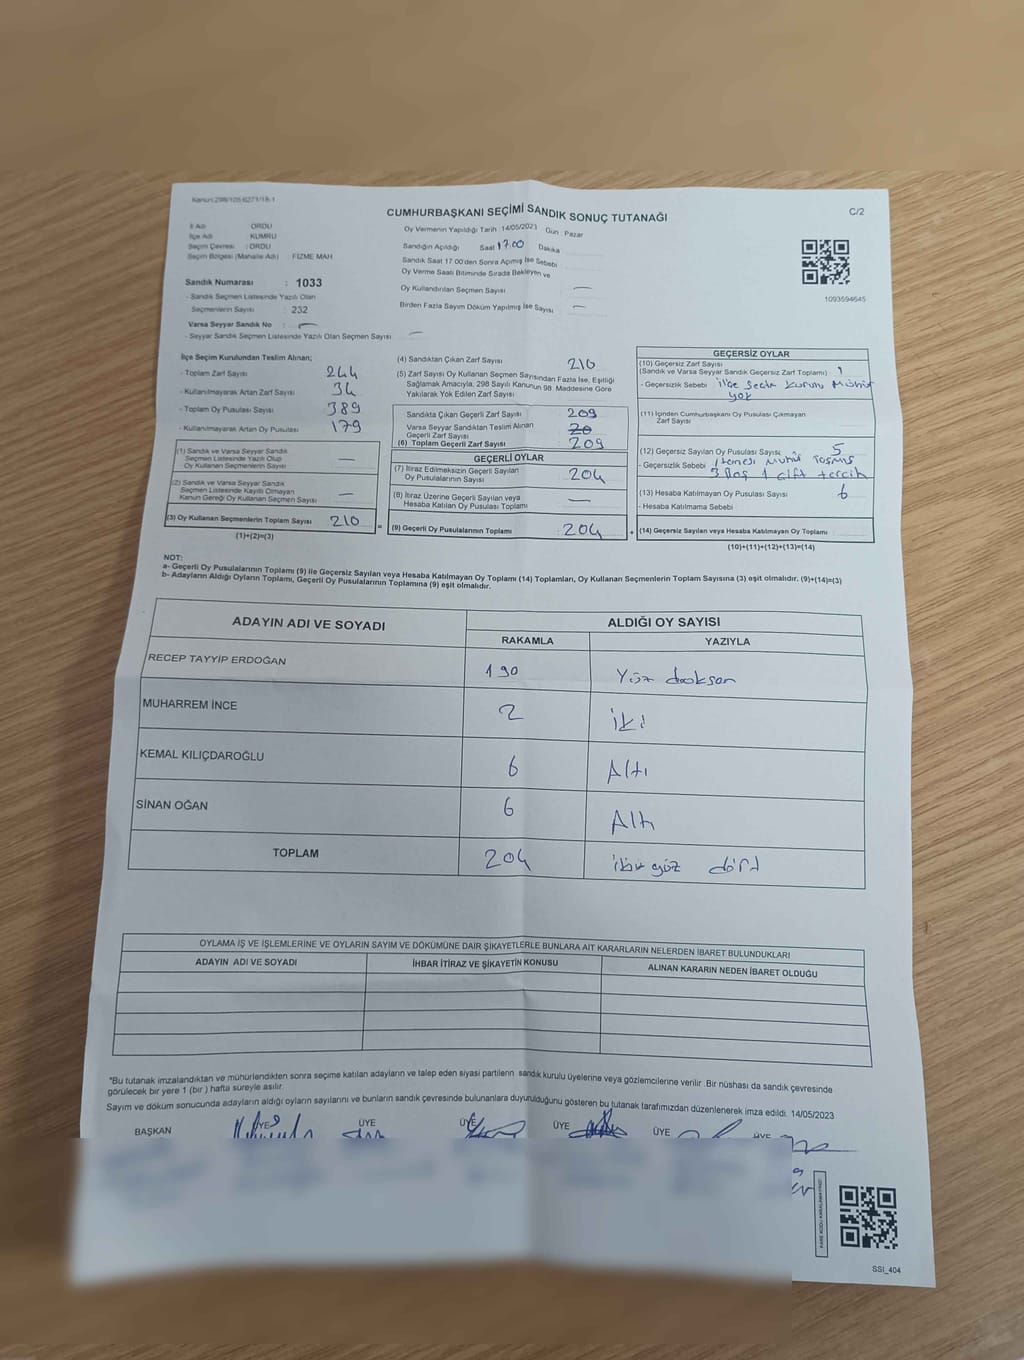 Kanun:298/105,6271/18-1
CUMHURBAŞKANI SEÇİMİ SANDIK SONUÇ TUTANAĞI
C/2
İl Adı : ORDU
İlçe Adı : KUMRU
Seçim Çevresi : ORDU
Seçim Bölgesi (Mahalle Adı) : FİZME MAH
Sandık Numarası : 1033
- Sandık Seçmen Listesinde Yazılı Olan
Seçmenlerin Sayısı : 232
Varsa Seyyar Sandık No : —
- Seyyar Sandık Seçmen Listesinde Yazılı Olan Seçmen Sayısı : —
Oy Vermenin Yapıldığı Tarih : 14/05/2023 Gün : Pazar
Sandığın Açıldığı Saat 17.00 Dakika
Sandık Saat 17.00'den Sonra Açmış İse Sebebi
Oy Verme Saati Bitiminde Sırada Bekleyen ve
Oy Kullandırılan Seçmen Sayısı —
Birden Fazla Sayım Döküm Yapılmış İse Sayısı —
1093594645
İlçe Seçim Kurulundan Teslim Alınan;
- Toplam Zarf Sayısı 244
- Kullanılmayarak Artan Zarf Sayısı 34
- Toplam Oy Pusulası Sayısı 389
- Kullanılmayarak Artan Oy Pusulası 179
(1) Sandık ve Varsa Seyyar Sandık
Seçmen Listesinde Yazılı Olup
Oy Kullanan Seçmenlerin Sayısı —
(2) Sandık ve Varsa Seyyar Sandık
Seçmen Listesinde Kayıtlı Olmayan
Kanun Gereği Oy Kullanan Seçmen Sayısı —
(3) Oy Kullanan Seçmenlerin Toplam Sayısı 210
(1)+(2)=(3)
(4) Sandıktan Çıkan Zarf Sayısı 210
(5) Zarf Sayısı Oy Kullanan Seçmen Sayısından Fazla İse, Eşitliği
Sağlamak Amacıyla, 298 Sayılı Kanunun 98. Maddesine Göre
Yakılarak Yok Edilen Zarf Sayısı
Sandıkta Çıkan Geçerli Zarf Sayısı 209
Varsa Seyyar Sandıktan Teslim Alınan
Geçerli Zarf Sayısı 20
(6) Toplam Geçerli Zarf Sayısı 209
GEÇERLİ OYLAR
(7) İtiraz Edilmeksizin Geçerli Sayılan
Oy Pusulalarının Sayısı 204
(8) İtiraz Üzerine Geçerli Sayılan veya
Hesaba Katılan Oy Pusulası Toplamı —
(9) Geçerli Oy Pusulalarının Toplamı 204
GEÇERSİZ OYLAR
(10) Geçersiz Zarf Sayısı
(Sandık ve Varsa Seyyar Sandık Geçersiz Zarf Toplamı) 1
- Geçersizlik Sebebi ilçe Seçim Kurulu Mühür
yok
(11) İçinden Cumhurbaşkanı Oy Pusulası Çıkmayan
Zarf Sayısı
(12) Geçersiz Sayılan Oy Pusulası Sayısı 5
- Geçersizlik Sebebi mühür taşmış
3 Boş 1 çift tercih
(13) Hesaba Katılmayan Oy Pusulası Sayısı 6
- Hesaba Katılmama Sebebi
(14) Geçersiz Sayılan veya Hesaba Katılmayan Oy Toplamı
(10)+(11)+(12)+(13)=(14)
NOT:
a- Geçerli Oy Pusulalarının Toplamı (9) ile Geçersiz Sayılan veya Hesaba Katılmayan Oy Toplamı (14) Toplamları, Oy Kullanan Seçmenlerin Toplam Sayısına (3) eşit olmalıdır. (9)+(14)=(3)
b- Adayların Aldığı Oyların Toplamı, Geçerli Oy Pusulalarının Toplamına (9) eşit olmalıdır.
ADAYIN ADI VE SOYADI
ALDIĞI OY SAYISI
RAKAMLA YAZIYLA
RECEP TAYYİP ERDOĞAN 190 Yüz doksan
MUHARREM İNCE 2 iki
KEMAL KILIÇDAROĞLU 6 Altı
SİNAN OĞAN 6 Altı
TOPLAM 204 iki yüz dört
OYLAMA İŞ VE İŞLEMLERİNE VE OYLARIN SAYIM VE DÖKÜMÜNE DAİR ŞİKAYETLERLE BUNLARA AİT KARARLARIN NELERDEN İBARET BULUNDUKLARI
ADAYIN ADI VE SOYADI İHBAR İTİRAZ VE ŞİKAYETİN KONUSU ALINAN KARARIN NEDEN İBARET OLDUĞU
*Bu tutanak imzalandıktan ve mühürlendikten sonra seçime katılan adayların ve talep eden siyasi partilerin sandık kurulu üyelerine veya gözlemcilerine verilir. Bir nüshası da sandık çevresinde
görülecek bir yere 1 (bir ) hafta süreyle asılır.
Sayım ve döküm sonucunda adayların aldığı oyların sayılarını ve bunların sandık çevresinde bulunanlara duyurulduğunu gösteren bu tutanak tarafımızdan düzenlenerek imza edildi. 14/05/2023
BAŞKAN ÜYE ÜYE ÜYE ÜYE ÜYE ÜYE
SSI_404